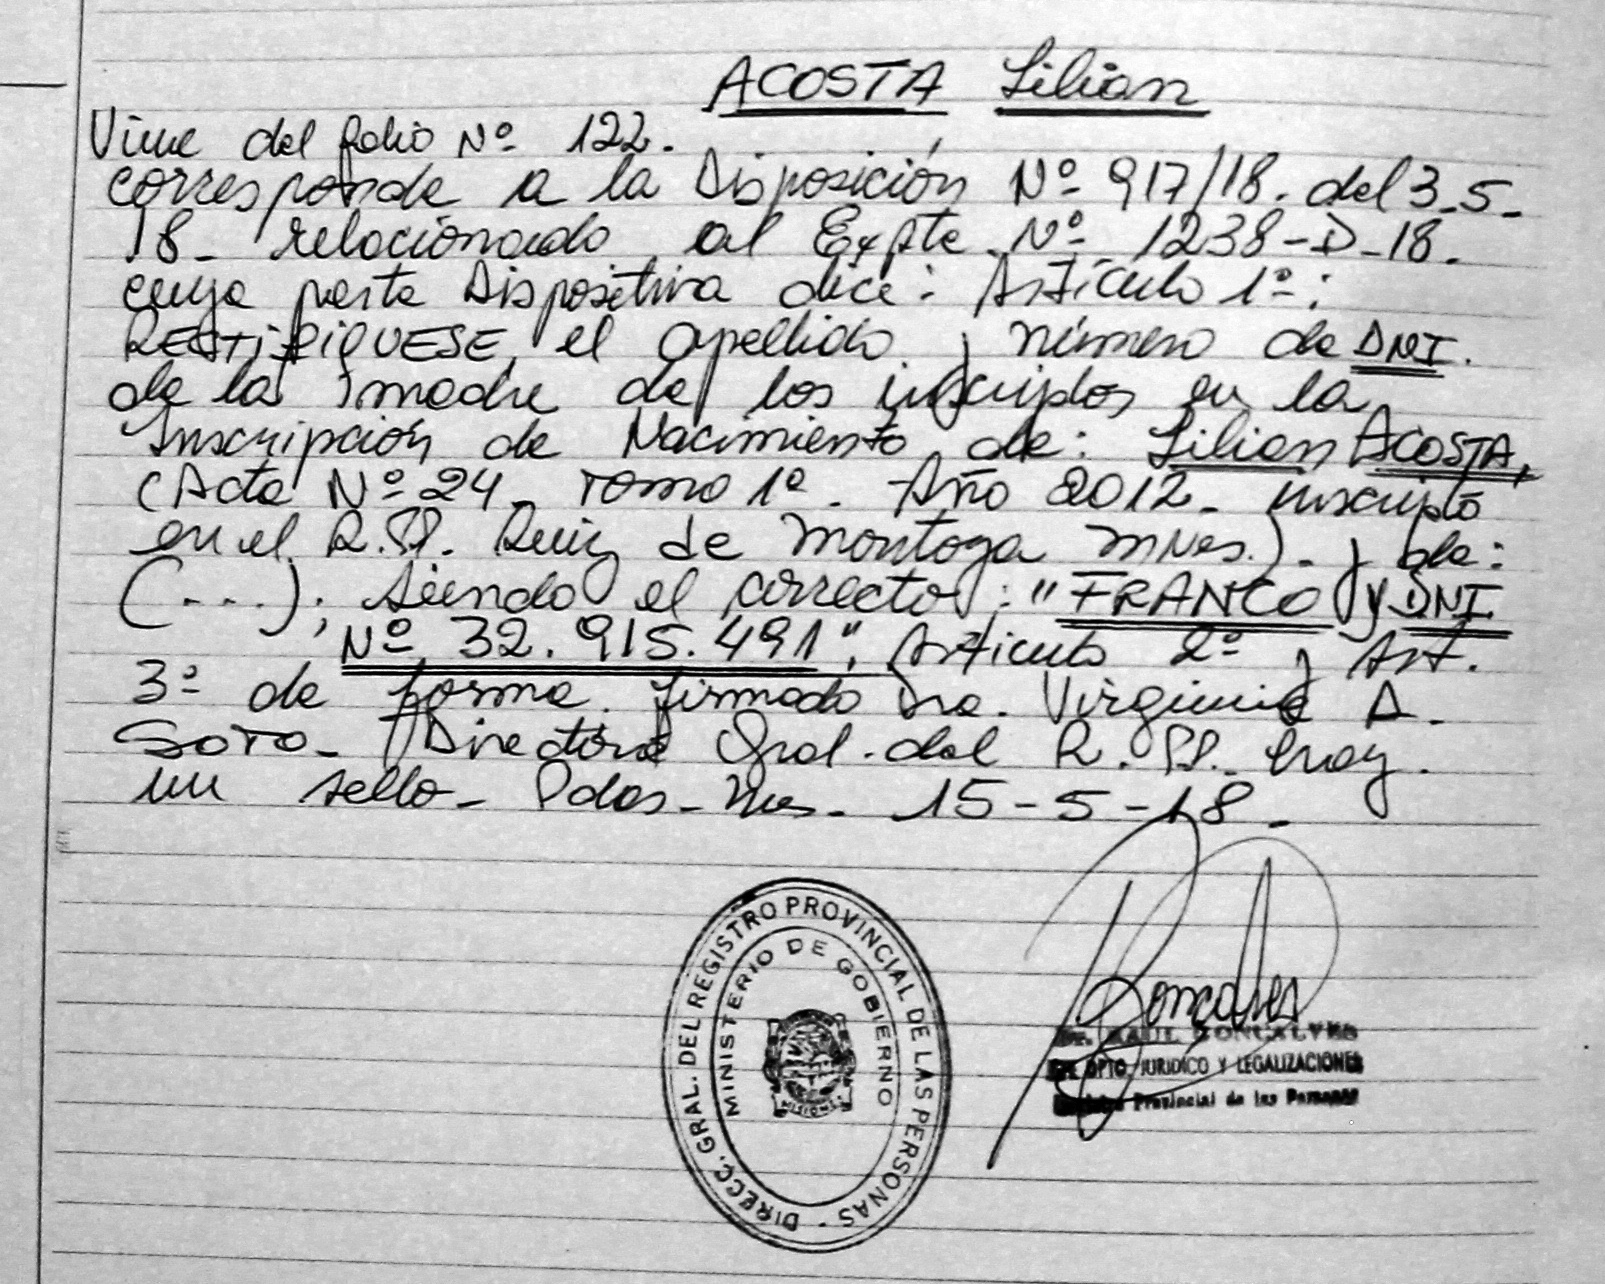 ACOSTA Lilian
Viene del folio Nº 122.
corresponde a la Disposición Nº 917/18. del 3-5-
18- relacionado al Expte. Nº 1238-D-18.
cuya parte Dispositiva dice: Artículo 1º:
RECTIFIQUESE, el apellido y número de DNI.
de la madre de los inscriptos en la
Inscripción de Nacimiento de: Lilian ACOSTA,
(Acta Nº 24- Tomo 1º- Año 2012- inscripto
en el R.P.P. Ruiz de Montoya Mnes.)- y de:
(...); siendo el correcto: "FRANCO y DNI
Nº 32.915.491". Artículo 2º y Art.
3º de forma. firmado Dra. Virginia A.
SOTO- Directora Gral. del R.P.P. hay
un sello- Pdas-Mnes- 15-5-18-
DIRECC. GRAL. DEL REGISTRO PROVINCIAL DE LAS PERSONAS
MINISTERIO DE GOBIERNO
MISIONES
Goncalves
Dr. RAUL GONCALVES
DPTO. JURIDICO Y LEGALIZACIONES
Provincial de las Personas